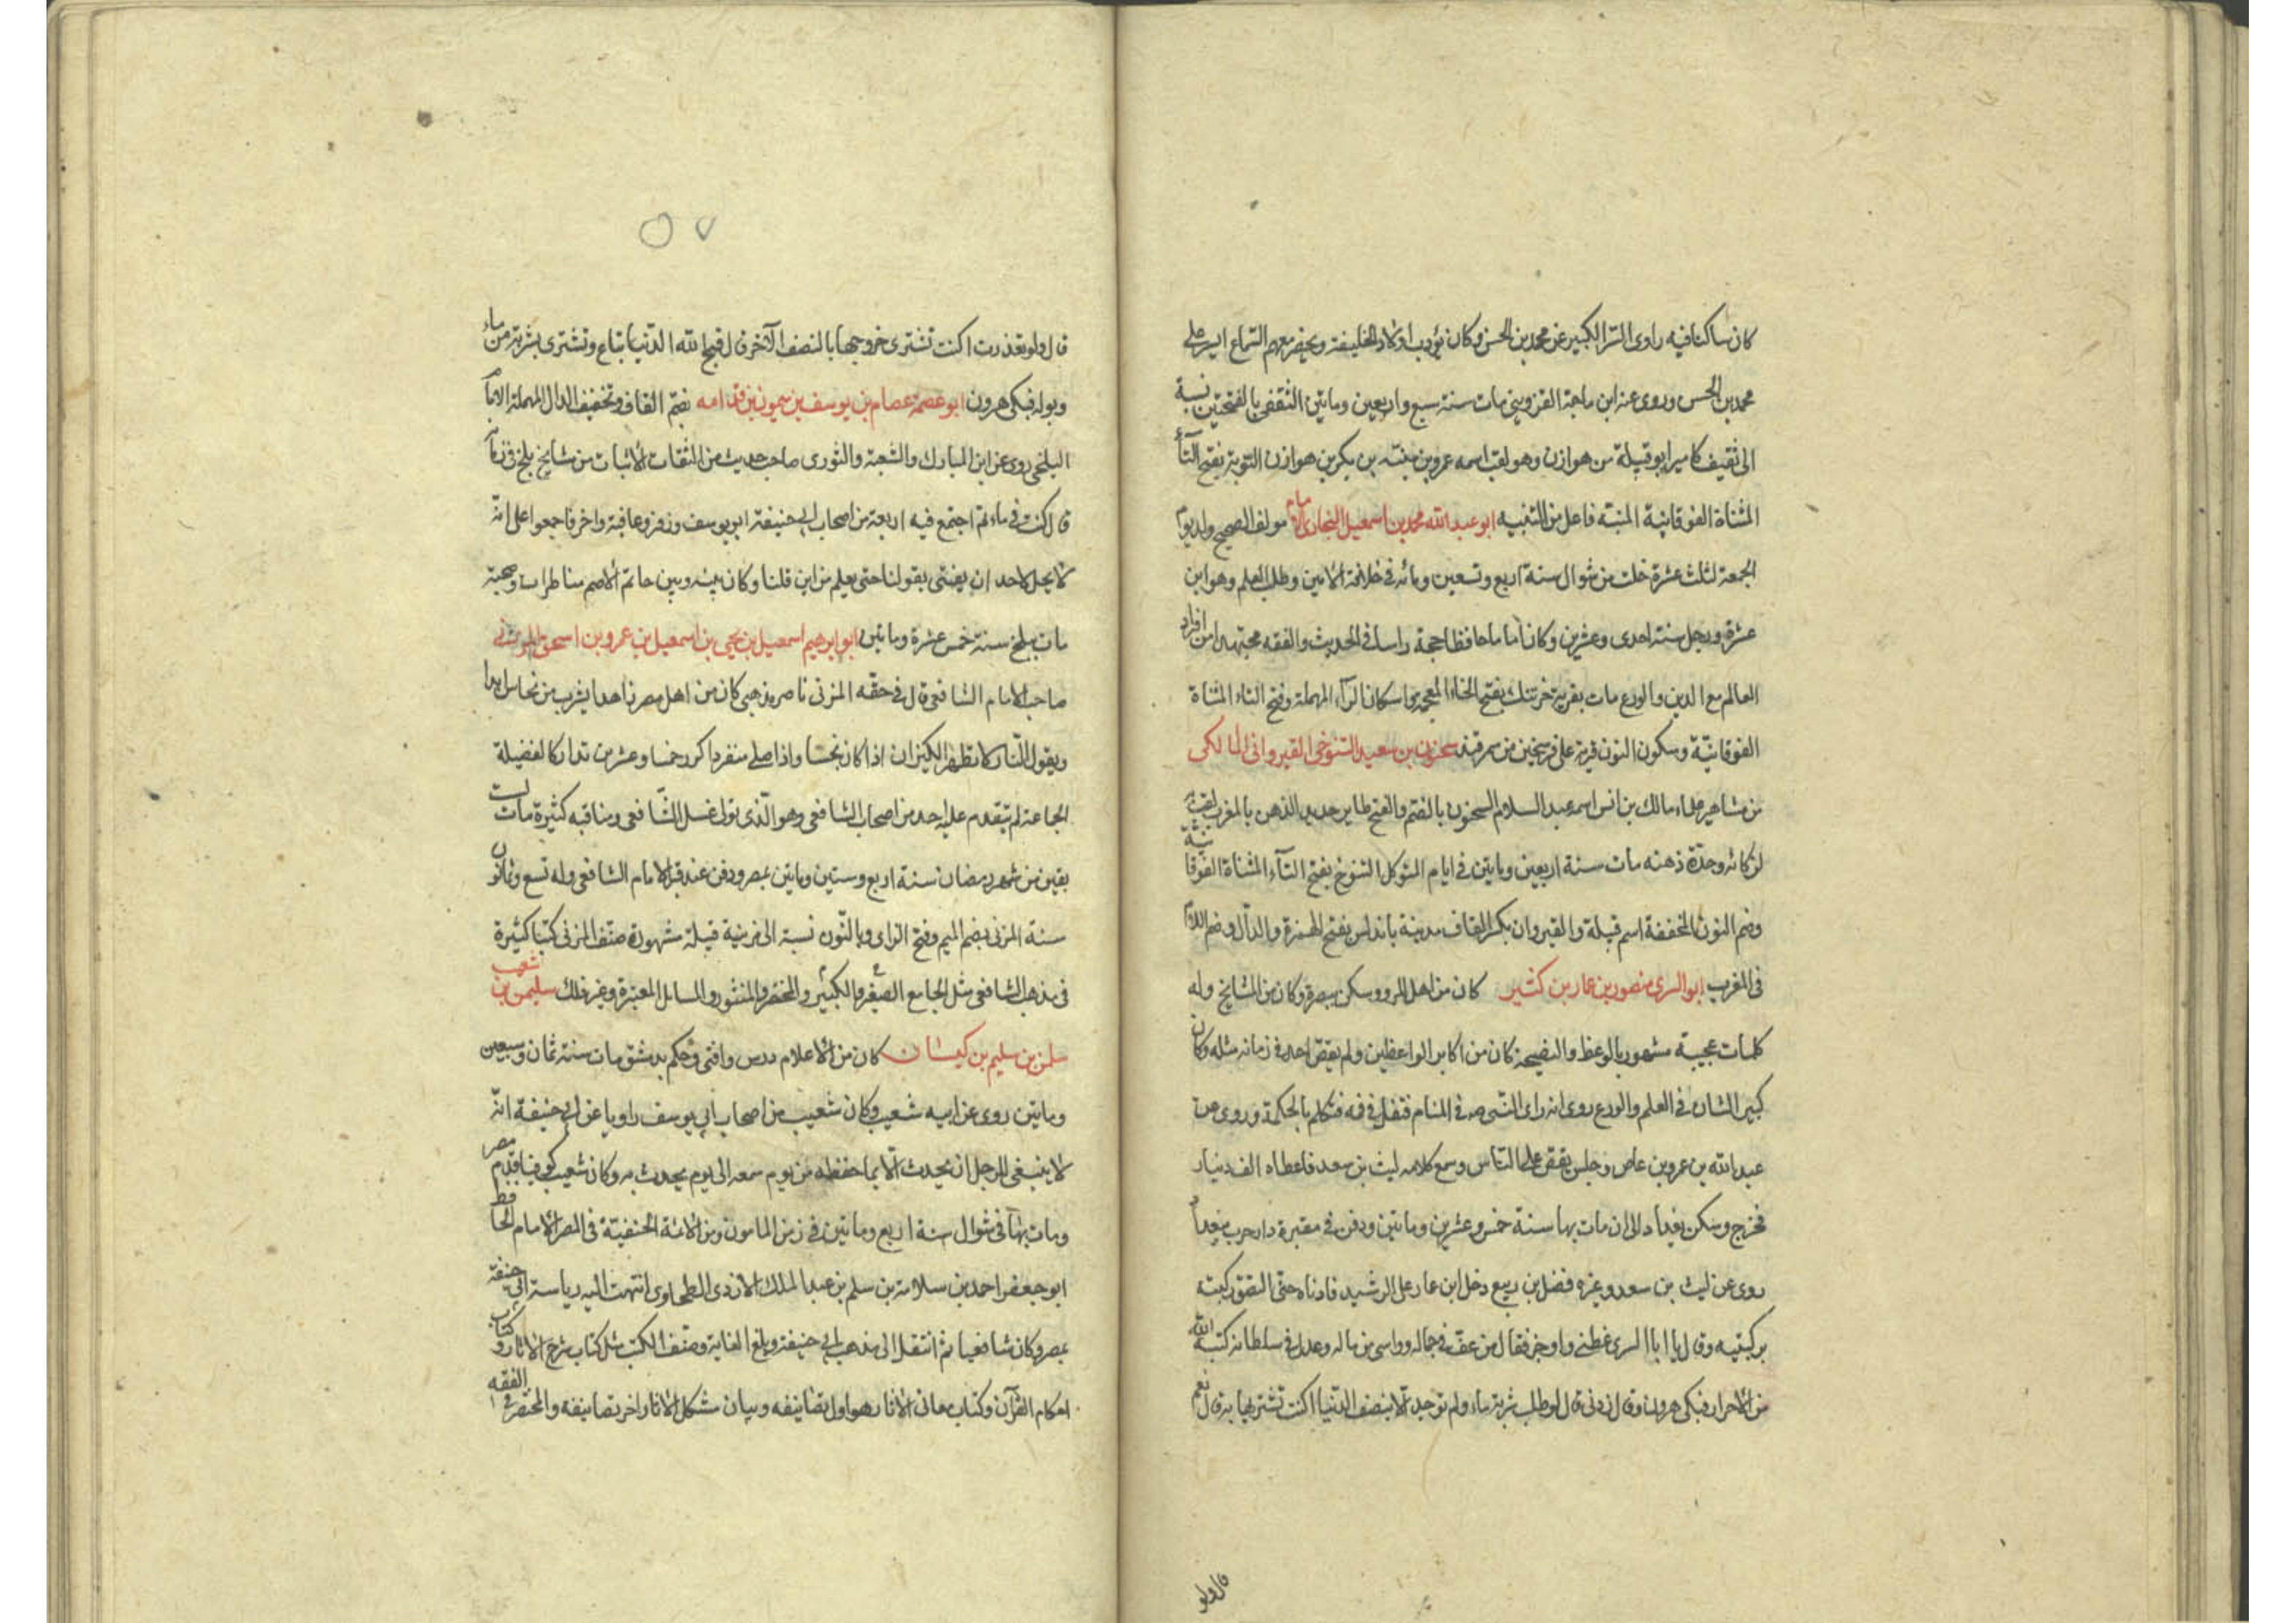 كان ساكنا فيه راوى السير الكبير عن محمد بن الحسن وكان يؤدب اولاد الخليفة ويحضر معهم السماع السير على
محمد بن الحسن وروى عنه ابن ماجة القزوينى مات سنة سبع واربعين ومايتين الثقفى بالفتحتين نسبة
الى ثقيف كامير ابو قبيلة من هوازن وهو لقب اسمه عمرو بن منبّه بن بكر بن هوازن التوبة بفتح التآء
المثناة الفوقانية المنبّه فاعل من التنبيه ابو عبد الله محمد بن اسمعيل البخارى الامام مولف الصحيح ولد يوم
الجمعة لثلث عشرة خلت من شوال سنة اربع وتسعين ومائه فى خلافة الامين وطلب العلم وهو ابن
عشرة ورحل سنة احدى وعشرين وكان اماما حافظا حجة راسا فى الحديث والفقه مجتهدا من افراد
العالم مع الدين والورع مات بقرية خرتنك بفتح الخاء المعجمة واسكان الرآء المهملة وفتح التاء المثناة
الفوقانيّة وسكون النون قرية على فرسخين من سمرقند سحنون بن سعيد التنوخى القيروانى المالكى
من مشاهير علماء مالك بن انس اسمه عبد السلام السحنون بالضم والفتح طاير حديد الذهن بالمغرب لقب به
لذكائه وحدّة ذهنه مات سنة اربعين ومايتين فى ايام المتوكل التنوخ بفتح التآء المثناة الفوقانيّة
وضم النون المخففة اسم قبيلة والقيروان بكسر القاف مدينة باندلس بفتح الهمزة والدال وضم اللام
فى المغرب ابو السرى منصور بن عمار بن كثير كان من اهل المرو وسكن ببصرة وكان من المشايخ وله
كلمات عجيبة مشهور بالوعظ والنصيحة كان من اكابر الواعظين ولم يقص احد فى زمانه مثله وكان
كبير الشان فى العلم والورع روى انه راى النبى صم فى المنام فتفل فى فه فتكلم بالحكمة وروى عن
عبد الله بن عمرو بن عاص وجلس يقص على الناس وسمع كلامه ليث بن سعد فاعطاه الف دينار
فخرج وسكن بغداد الى ان مات بها سنة خمس وعشرين ومايتين ودفن فى مقبرة دار حرب ببغداد
روى عن ليث بن سعد وغيره فضل بن ربيع دخل ابن عمار على الرشيد فادناه حتى التصق ركبته
بركبتيه وقال يا ابا السرى عظنى واوجز فقال من عفّ فى جماله وواسى من ماله وعدل فى سلطانه كتبه الله
من الاحرار فبكى هرون وقال زدنى قال لو طلب شربة ماء ولم توجد الا بنصف الدنيا اكنت تشتريها به قال نعم
قال ولو
قال ولو تعذرت اكنت تشترى خروجها بالنصف الآخر قال قبح الله الدّنيا تباع وتشترى بشربة من ماء
وبوله فبكى هرون ابو عصمة عصام بن يوسف بن ميمون بن قدامه بضم القاف وتخفيف الدال المهملة الامام
البلخى روى عن ابن المبارك والشعبة والثورى صاحب حديث من الثقات الاثبات من مشايخ بلخ فى زمانه
قال كنت فى ماتم اجتمع فيه اربعة من اصحاب ابى حنيفة ابو يوسف وزفر وعافية واخر فاجمعوا على انّه
لا يحل لاحد ان يفتى بقولنا حتى يعلم من اين قلنا وكان بينه وبين حاتم الاصم مناظرات وصحبة
مات ببلخ سنة خمس عشرة ومايتين ابو ابرهيم اسمعيل بن يحيى بن اسمعيل بن عمرو بن اسحق المزنى
صاحب الامام الشافعى قال فى حقّه المزنى ناصر مذهبى كان من اهل مصر زاهدا يشرب من نحاس ابدا
ويقول النّار لا تطهر الكيزان اذا كان نجسا واذا صلى منفردا كرر خمسا وعشرين تداركا لفضيلة
الجماعة لم يتقدم عليه احد من اصحاب الشافعى وهو الّذى تولى غسل الشّافعى ومناقبه كثيرة مات لست
بقين من شهر رمضان سنة اربع وستين ومايتين بمصر ودفن عند قبر الامام الشافعى وله تسع وثمانون
سنة المزنى بضم الميم وفتح الزاى وبالنّون نسبة الى مزنية قبيلة مشهورة صنّف المزنى كتبا كثيرة
فى مذهب الشافعى مثل الجامع الصغير والكبير والمختصر والمنثور والمسايل المعتبرة وغير ذلك سليمن بن شعيب
سلمن بن سليم بن كيسان كان من الاعلام درس وافتى وحكم بدمشق مات سنة ثمان وسبعين
ومايتين روى عن ابيه شعيب وكان شعيب من اصحاب ابى يوسف راويا عن ابى حنيفة انّه
لا ينبغى للرجل ان يحدث الا بما حفظه من يوم سمعه الى يوم يحدث به وكان شعيب كوفيا قدم مصر
ومات بها فى شوال سنة اربع ومايتين فى زمن المامون ومن الائمة الحنفيّة فى المصر الامام الحافظ
ابو جعفر احمد بن سلامة بن سلم بن عبد الملك الازدى الطحاوى انتهت اليه رياسة ابى حنيفة
بمصر وكان شافعيا ثم انتقل الى مذهب ابى حنيفة وبلغ الغاية وصنّف الكتب مثل كتاب شرح الاثار وكتاب
احكام القرآن وكتاب معانى الاثار هو اول تصانيفه وبيان مشكل الاثار اخر تصانيفه والمختصر فى الفقه